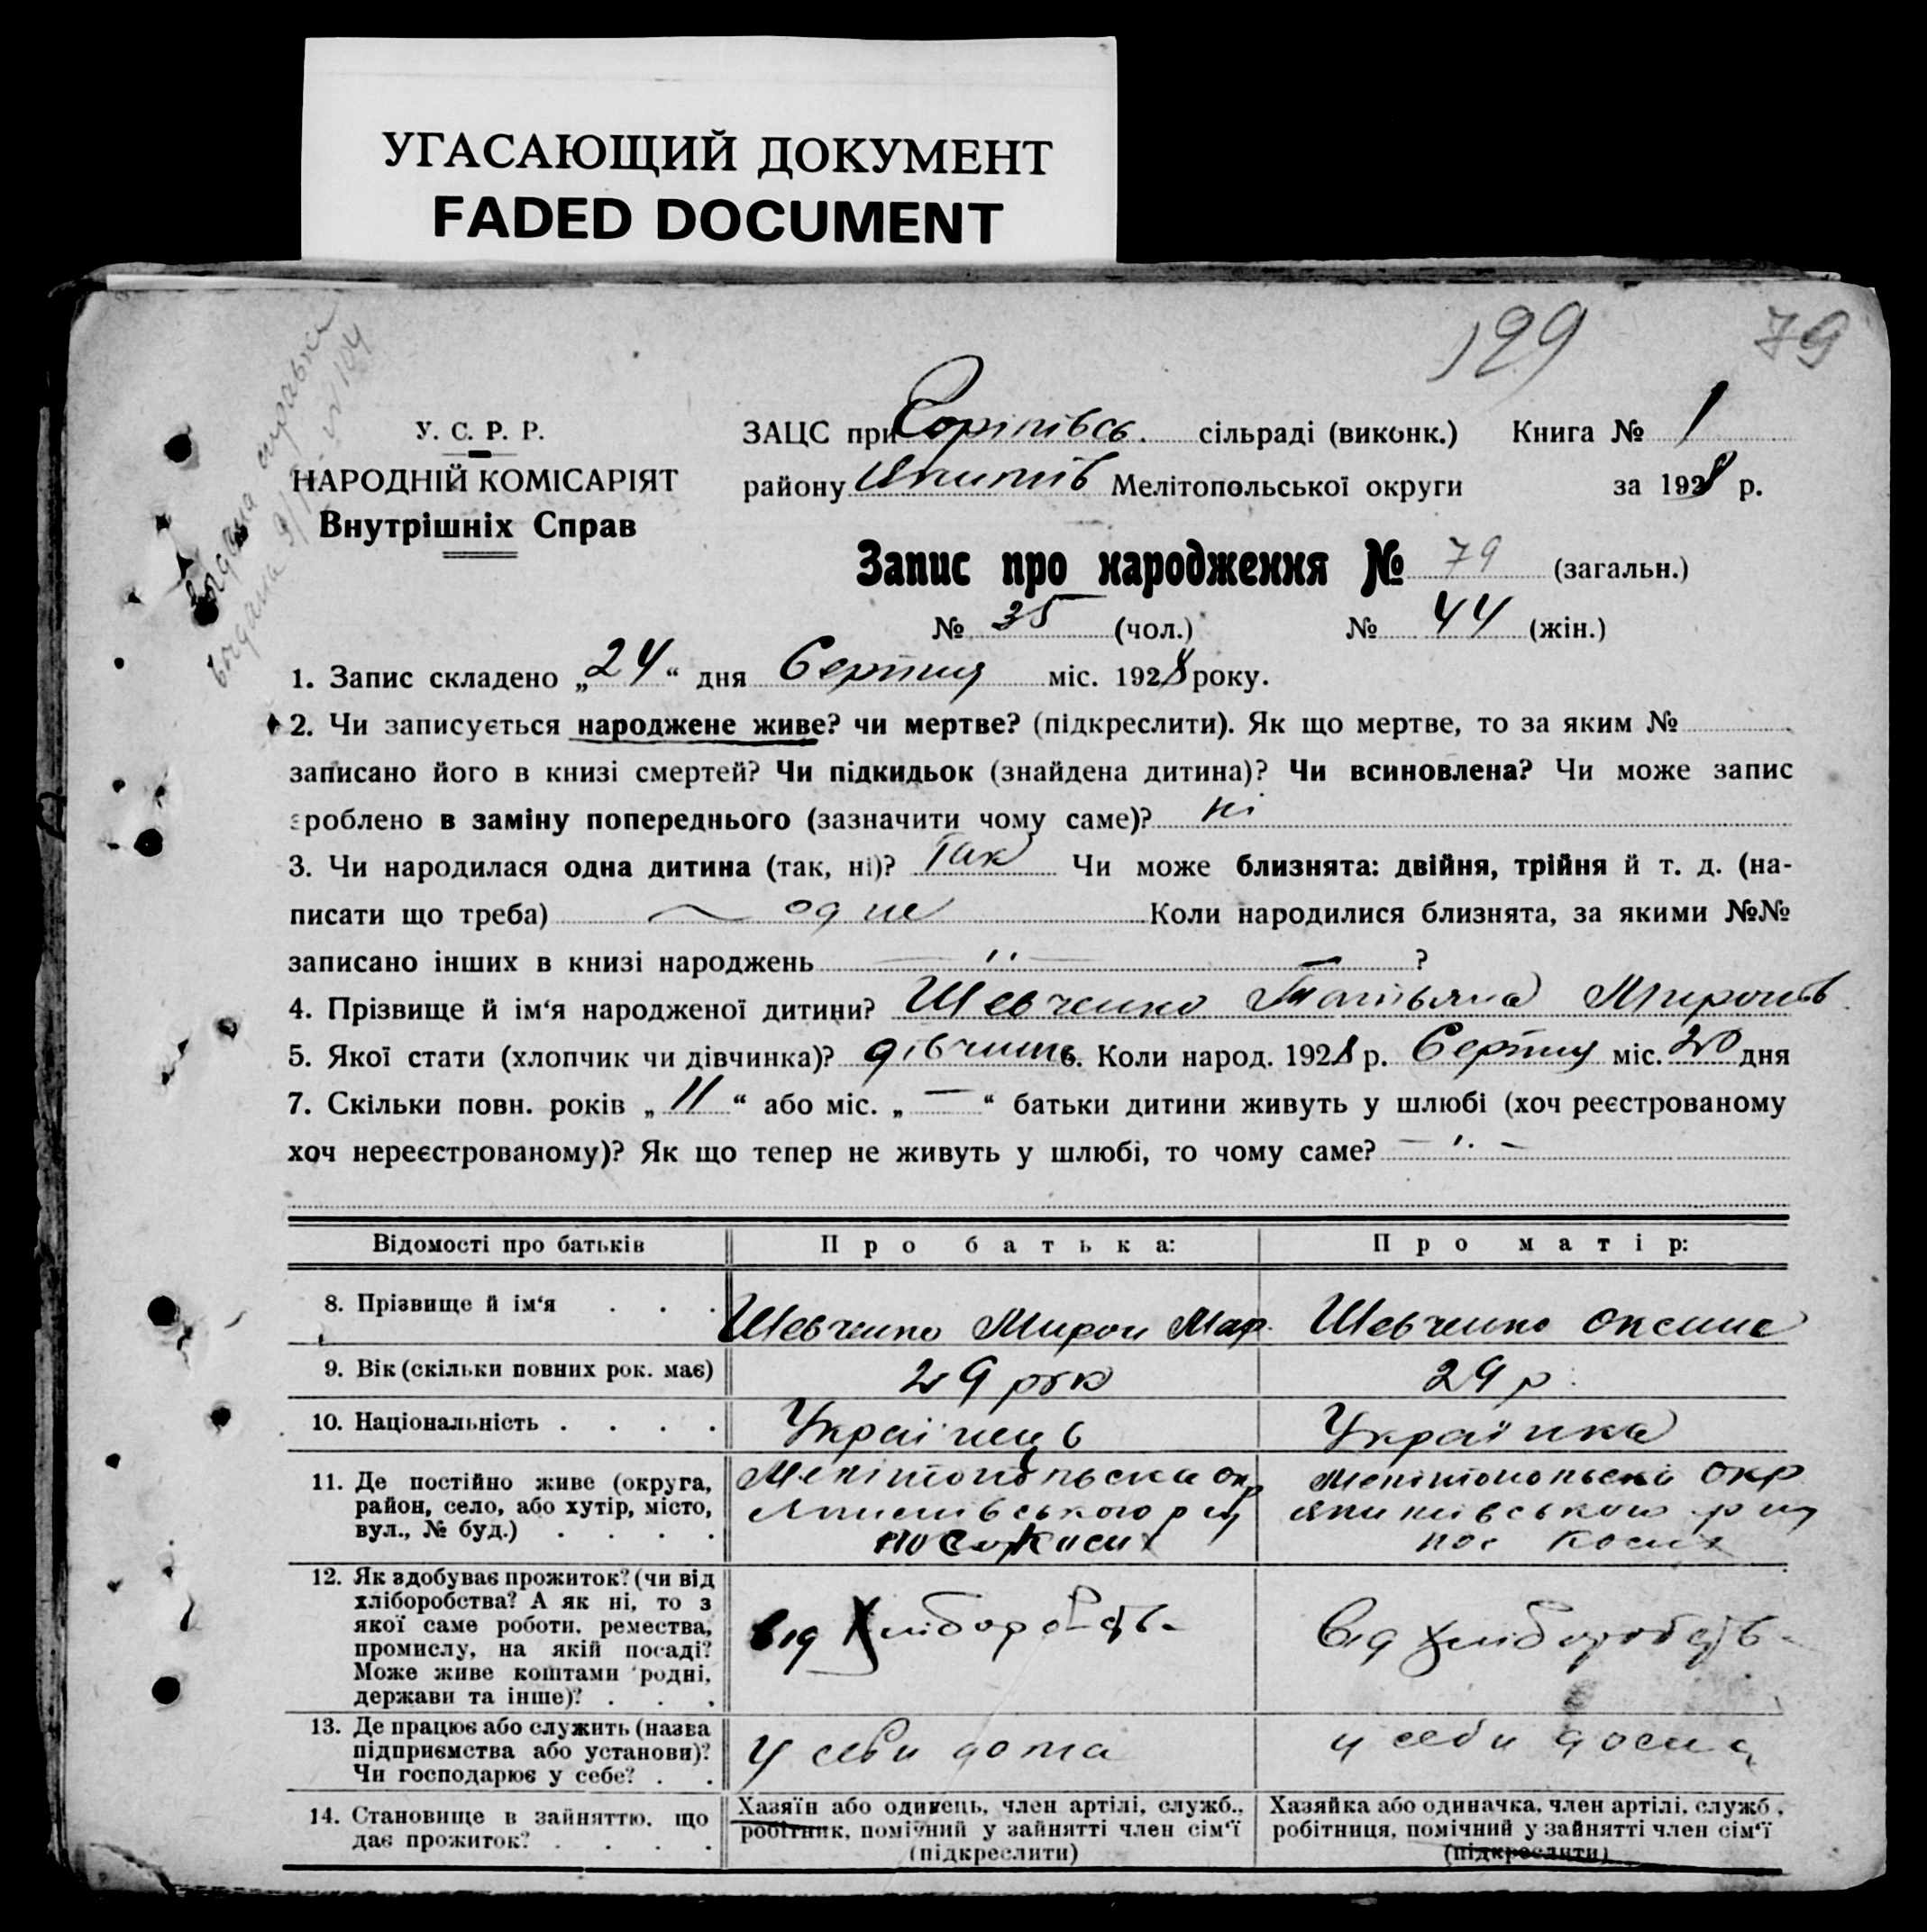 УГАСАЮЩИЙ ДОКУМЕНТ
FADED DOCUMENT
129 79
У. С. Р. Р.
НАРОДНІЙ КОМІСАРІЯТ
Внутрішніх Справ
ЗАЦС при сільраді (виконк.) Книга № 1
району Мелітопольської округи за 1928 р.
Запис про народження № 79 (загальн.)
№ 35 (чол.) № 44 (жін.)
1. Запис складено „24“ дня Серпня міс. 1928 року.
2. Чи записується народжене живе? чи мертве? (підкреслити). Як що мертве, то за яким №
записано його в книзі смертей? Чи підкидьок (знайдена дитина)? Чи всиновлена? Чи може запис
зроблено в заміну попереднього (зазначити чому саме)? ні
3. Чи народилася одна дитина (так, ні)? Так Чи може близнята: двійня, трійня й т. д. (на-
писати що треба) одне Коли народилися близнята, за якими №№
записано інших в книзі народжень — " — ?
4. Прізвище й ім‘я народженої дитини? Шевченко Татьяна Миронів
5. Якої стати (хлопчик чи дівчинка)? дівчина 6. Коли народ. 1928 р. Серпня міс. 20 дня
7. Скільки повн. років „11“ або міс. „—“ батьки дитини живуть у шлюбі (хоч реєстрованому
хоч нереєстрованому)? Як що тепер не живуть у шлюбі, то чому саме? — " —
Відомості про батьків Про батька: Про матір:
8. Прізвище й ім‘я . . . Шевченко Мирон Мар. Шевченко Оксана
9. Вік (скільки повних рок. має) 29 рок 29 р.
10. Національність . . . . Українець Українка
11. Де постійно живе (округа,
район, село, або хутір, місто,
вул., № буд.) . . . .
Мелітопольска окр
Якимівського р ну
Мелітопольскі окр
якимівського р ну
пос Косих
12. Як здобуває прожиток? (чи від
хліборобства? А як ні, то з
якої саме роботи, ремества,
промислу, на якій посаді?
Може живе коштами родні,
держави та інше)? . . .
від Хліборобств.
від хліборобств.
13. Де працює або служить (назва
підприємства або установи)?
Чи господарює у себе? . .
У себи дома
у себи дома
14. Становище в зайняттю, що
дає прожиток? . . . .
Хазяїн або одинець, член артілі, служб.,
робітник, помічний у зайнятті член сім‘ї
(підкреслити)
Хазяйка або одиначка, член артілі, служб.,
робітниця, помічний у зайнятті член сім‘ї
(підкреслити)